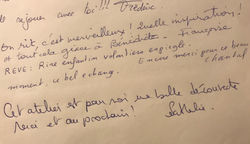 séjour avec toi !!! Frédéric
On rit, c'est merveilleux ! Quelle inspiration !
# tout cela grâce à Bénédicte. Françoise
RÊVE : Rire enfantin volontiers
Encore merci pour ce beau
moment, ce bel échange. Chantal
Cet atelier est pour moi une belle découverte
Merci et au prochain !
Nathalie